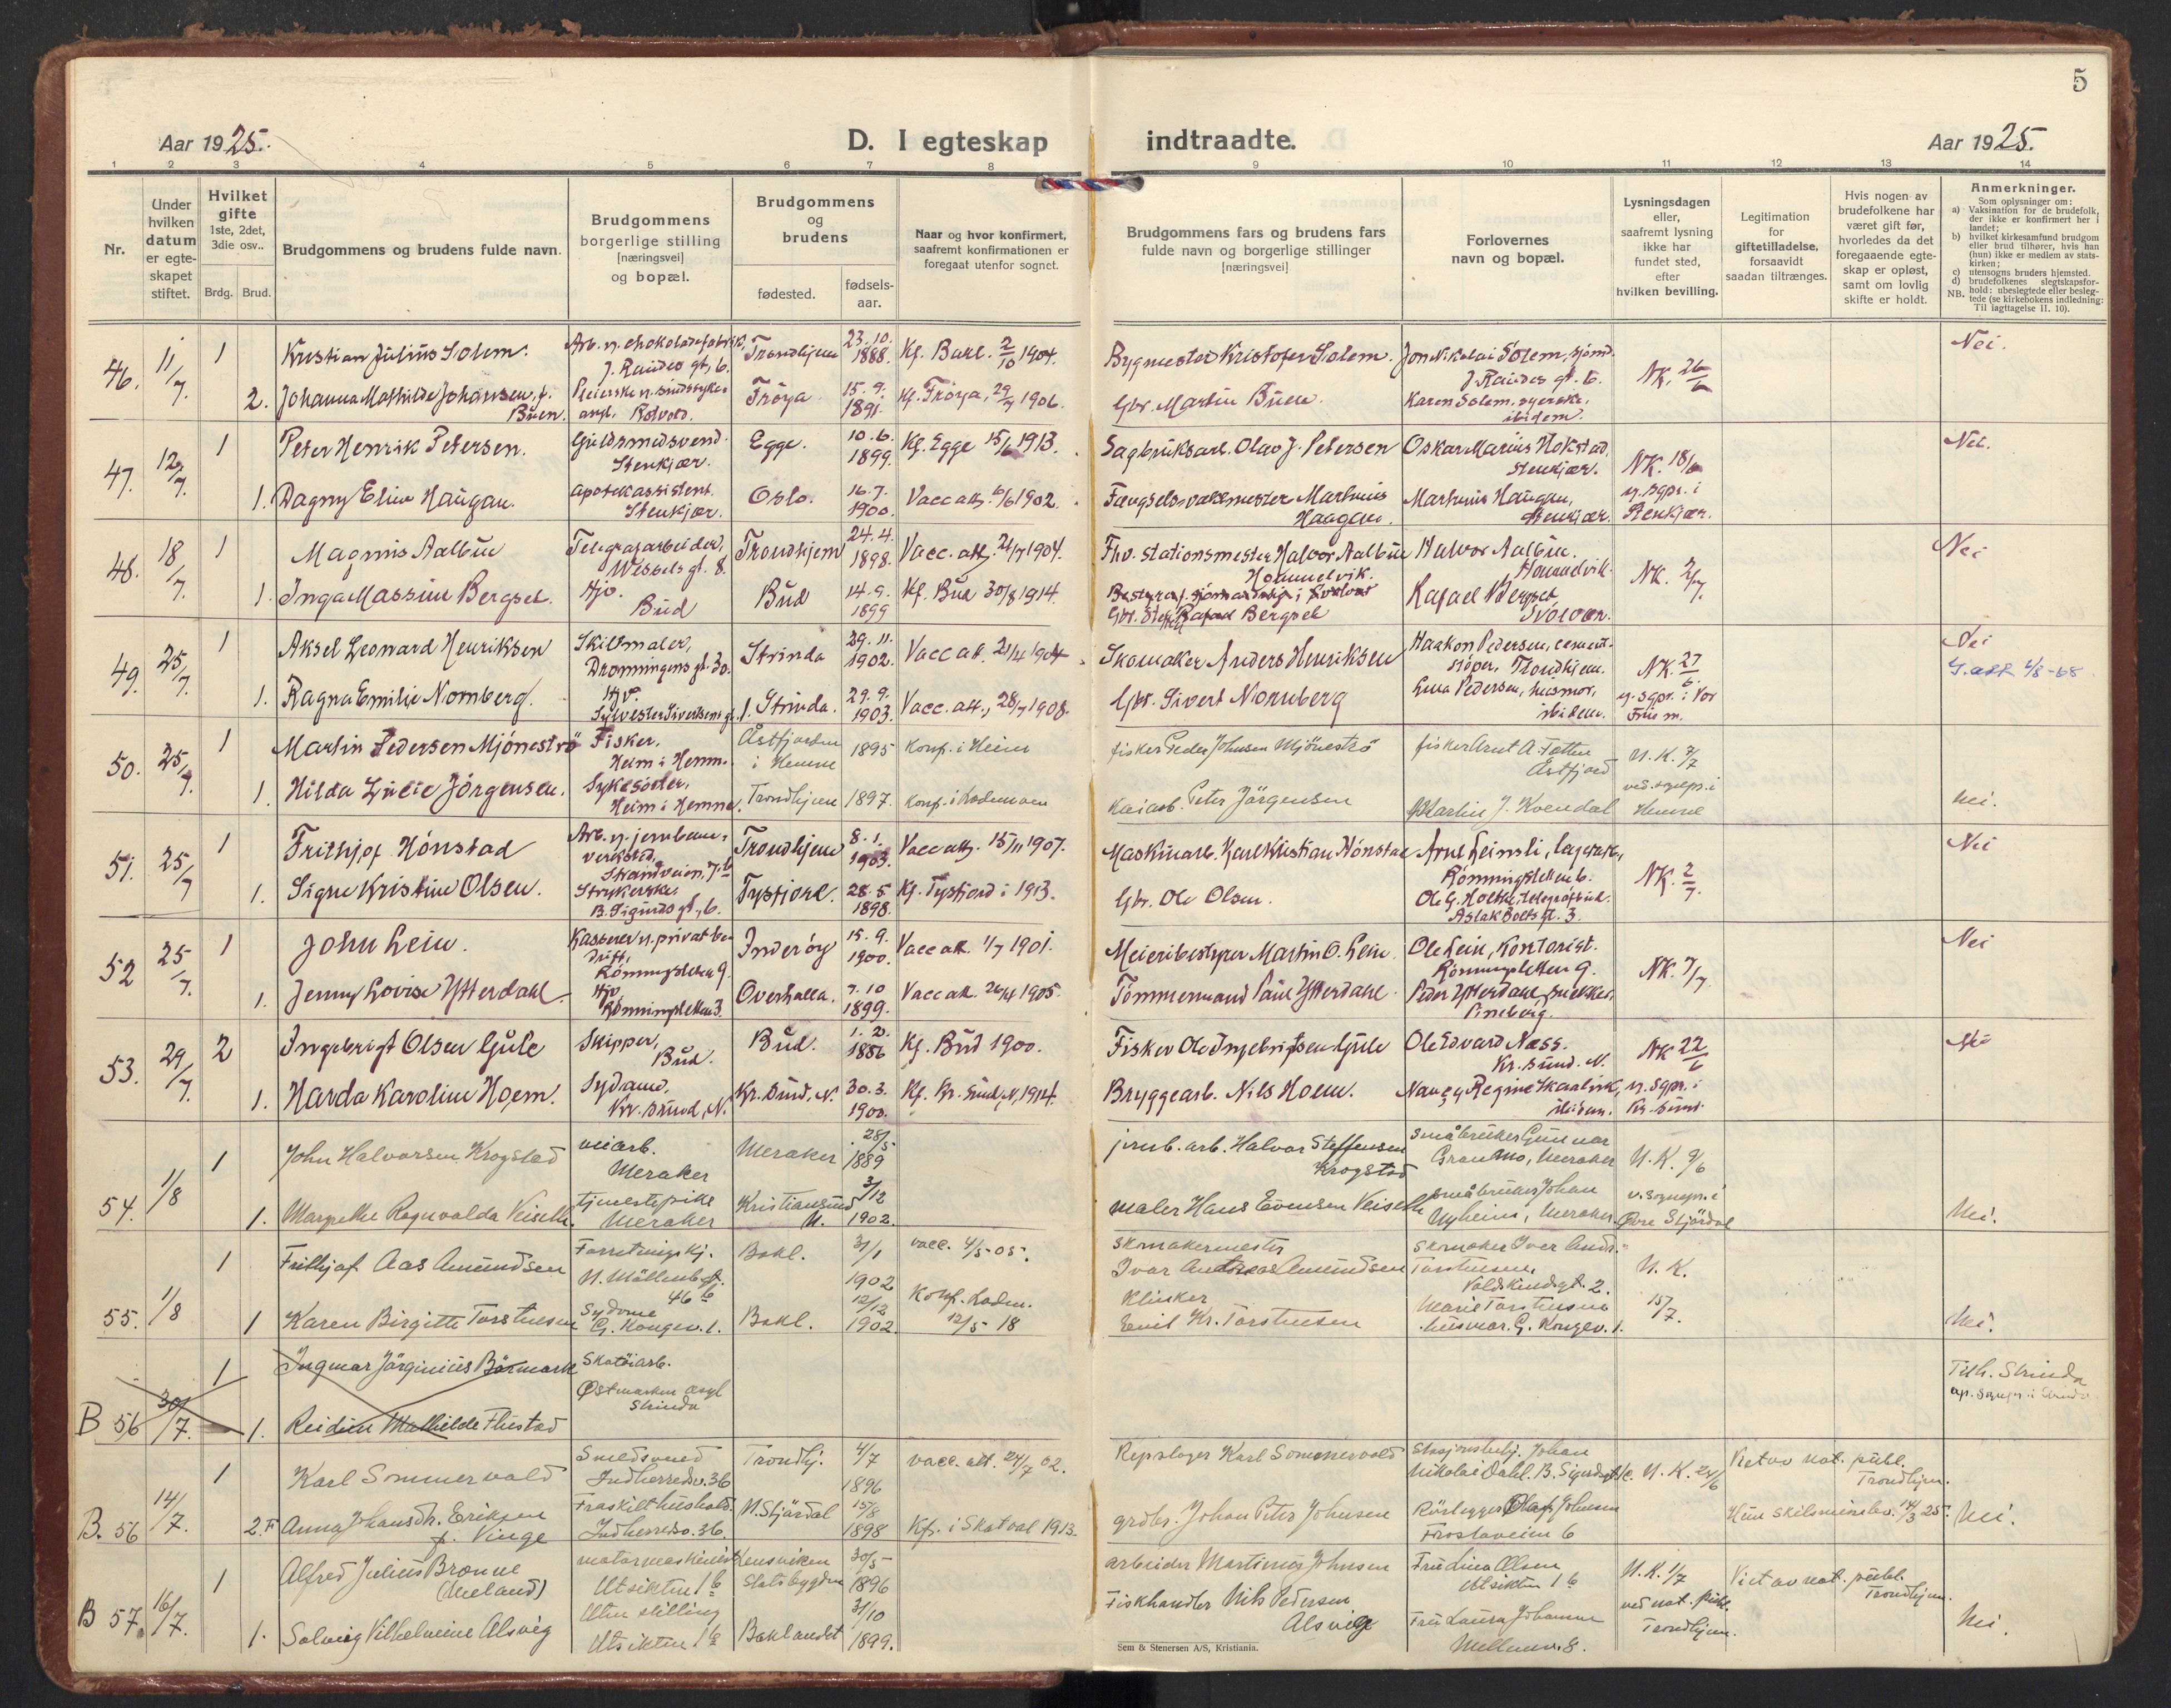 5
Aar 1925.
D. I egteskap indtraadte.
Aar 1925.
1 2 3 4 5 6 7 8 9 10 11 12 13 14
Nr.
Under hvilken datum er egteskapet stiftet.
Hvilket gifte 1ste, 2det, 3die osv..
Brdg. Brud.
Brudgommens og brudens fulde navn.
Brudgommens borgerlige stilling [næringsvei] og bopæl.
Brudgommens og brudens
fødested.
fødselsaar.
Naar og hvor konfirmert, saafremt konfirmationen er foregaat utenfor sognet.
Brudgommens fars og brudens fars fulde navn og borgerlige stillinger [næringsvei]
Forlovernes navn og bopæl.
Lysningsdagen eller, saafremt lysning ikke har fundet sted, efter hvilken bevilling.
Legitimation for giftetilladelse, forsaavidt saadan tiltrænges.
Hvis nogen av brudefolkene har været gift før, hvorledes da det foregaaende egteskap er opløst, samt om lovlig skifte er holdt.
Anmerkninger.
Som oplysninger om:
a) Vaksination for de brudefolk, der ikke er konfirmert her i landet;
b) hvilket kirkesamfund brudgom eller brud tilhører, hvis han (hun) ikke er medlem av statskirken;
c) utensogns bruders hjemsted.
d) brudefolkenes slegtskapsforhold: ubeslegtede eller beslegtede (se kirkebokens indledning:
NB. Til iagttagelse II. 10).
46. 11/7. 1 Kristian Julius Solem. Arb. v. chokoladefabrik, J. Randes gt. 6. Trondhjem 23.10. 1888. Kf. Bakl. 2/10 1904. Bygmester Kristofer Solem. Jon Nikolai Solem, sjømd. J. Randes gt. 6. NK. 26/6 Nei.
2. Johanna Mathilde Johansen, f. Buen. Pleierske v. sindssykeasyl. Rotvold. Frøya 15.9. 1891. Kf. Frøya, 29/7 1906. Gbr. Martin Buen. Karen Solem, syerske, ibidem.
47. 12/7. 1 Peter Henrik Petersen. Guldsmedsvend. Stenkjær. Egge. 10.6. 1899. Kf. Egge 15/6 1913. Sagbruksarb. Olav J. Petersen Oskar Marius Hokstad, Stenkjær. NK. 18/6 v. sgpr. i Stenkjær. Nei.
1. Dagny Eline Haugan. Apotekassistent. Stenkjær. Oslo. 16.7. 1900. Vacc. att. 6/6 1902. Fængselsvaktmester Martinus Haagan. Martinus Haugan, Stenkjær.
48. 18/7. 1 Magnus Aalbu Telegrafarbeider, Wessels gt. 8. Trondhjem 24.4. 1898. Vacc. att. 21/7 1904. Fhv. stationsmester Halvor Aalbu Hommelvik. Halvor Aalbu. Hommelvik. NK. 2/7. Nei
1. Inga Massine Bergset. Hjv. Bud Bud 14.9. 1899 Kf. Bud 30/8 1914. Rafael Bergset Rafael Bergset, Svolvær.
49. 25/7. 1 Aksel Leonard Henriksen Skiltmaler, Dronningens gt. 30. Strinda 29.11. 1902. Vacc. att. 21/4 1904 Skomaker Anders Henriksen Haakon Pedersen, cementstøper, Trondhjem. NK. 27/6. v. sgpr. i Vor Frue m. Nei
J. att 4/8-68
1. Ragna Emilie Nornberg. Hjv. Sylvester Sivertsens gt. 1. Strinda. 29.9. 1903. Vacc. att., 28/7 1908. Gbr. Sivert Nornberg Lina Pedersen, husmor, ibidem.
50. 25/7. 1 Martin Pedersen Mjönestrø Fisker, Heim i Hemn. Åstfjorden i Hemne 1895 Konf. i Heim fisker Peder Johnsen Mjönestrø fisker Arnt A. Fætten Åstfjord N.K. 7/7 ved sognepr. i Hemne
1. Hilda Lydie Jörgensen. Sykesöster, Heim i Hemne. Trondhjem 1897. Konf. i Lademoen Kaiarb. Peter Jörgensen Martin J. Kvendal Nei.
51. 25/7 1 Frithjof Hönstad Arb. v. jernbaneverksted, Strandveien, 7 b Trondhjem 8.1. 1903. Vacc. att. 15/11 1907. Maskinarb. Karl Kristian Hönstad Arne Leinsli, lagerarb., Rönningsletten 6. NK. 2/7. Nei
1. Signe Kristine Olsen. Strykerske, B. Sigurds gt., 6. Tysfjord. 28.5. 1898. Kf. Tysfjord i 1913. Gbr. Ole Olsen. Ole G. Holtke, telegrafbud. Aslak Bolts gt. 3.
52 25/7. 1 John Lein. Kasserer v. privat bedrift, Rönningsletten 9. Inderøy 15.9. 1900. Vacc. att. 1/7 1901. Meieribestyrer Martin O. Lein. Ole Lein, Kontorist. Rönningsletten 9. NK. 7/7. Nei
1. Jenny Lovise Ytterdahl. Hjv. Rönningsletten 3. Overhalla. 7.10 1899. Vacc. att. 26/4 1905. Tömmermand Paul Ytterdahl. Peder Ytterdahl, snekker, Sineborg.
53. 29/7. 2 Ingebrigt Olsen Gule Skipper, Bud. Bud. 1.2. 1886 Kf. Bud 1900. Fisker Ole Ingebrigtsen Gule Ole Edvard Næss. Kr.sund. N. NK 22/6 v. sgpr. i Kr.sund. Nei
1. Harda Karoline Hoem. Sydame, Kr.sund, N. Kr.sund, N. 30.3. 1900. Kf. Kr.sund, N, 1914. Bryggearb. Nils Hoem. Nancy Regine Skaalvik, ibidem.
54. 1/8 1 John Halvorsen Krogstad veiarb. Meraker Meraker 28/5. 1889 jernb. arb. Halvor Steffensen Krogstad småbruker Gunnar Granmo, Meraker N.K. 9/6 v. sognepr. i Øvre Stjördal
1. Margrethe Ragnvalda Veiseth. tjenestepike Meraker Kristiansund N. 3/12 1902. maler Hans Evensen Veiseth småbruker Johan Nyheim, Meraker. Nei.
55. 1/8 1 Frithjof Aas Amundsen Forretningsbj. N. Möllenb.gt. 46 b Bakl. 31/1 1902 vacc. 4/5-05. Skomakermester Ivar Andreas Amundsen Skomaker Iver Andr. Torstensen, Voldskindsgt. 2. N.K. 15/7.
1 Karen Birgitte Torstensen Sydame G. Kongev. 1. Bakl. 12/12 1902. Konf. Laden. 12/5 18 Klinker Emil Kr. Torstensen Marie Torstensen husmor. G. Kongev. 1. Nei.
B 56 30/7. 1 Ingmar Jörginius Börmark Skotöiarb. Østmarken asyl Strinda Tilh. Strinda
1. Reidun Mathilde Flustad
B. 56 14/7. 1 Karl Sommervold Smedsvend Indherredsv. 36 Trondhj. 4/7 1896 vacc. att. 24/7 02. Repslager Karl Sommervold Stasjonsbetj. Johan Nikolai Dahl. B. Sigurdsgt. N.K. 24/6 Viet av not. publ. Trondhjem.
2. F Anna Johansdtr. Eriksen f. Vinge Fraskilt hushold. Indherredsv. 36. N. Stjördal 15/8 1898 Kf. i Skatval 1913. grdbr. Johan Peter Johnsen Rörlegger Olaf Johnsen Frostaveien 6 Hun skilsmissebev. 14/3 25. Nei.
B 57. 16/7. 1 Alfred Julius Brønne (Meland) motormaskinist Utsikten 1 b Lensviken Statsbygden 30/5 1896 arbeider Martinus Johnsen Fru Lina Olsen Utsikten 1 b N.K. 1/7 ved not. publ. Trondhjem. Viet av not. publ. Trondhjem.
1. Solveig Vilhelmine Alsvig Uten stilling Utsikten 1 b Baklandet 31/10 1899. Fiskhandler Nils Pedersen Alsvig Fru Laura Johansen Mellemv. 8. Nei.
Sem & Stenersen A/S, Kristiania.